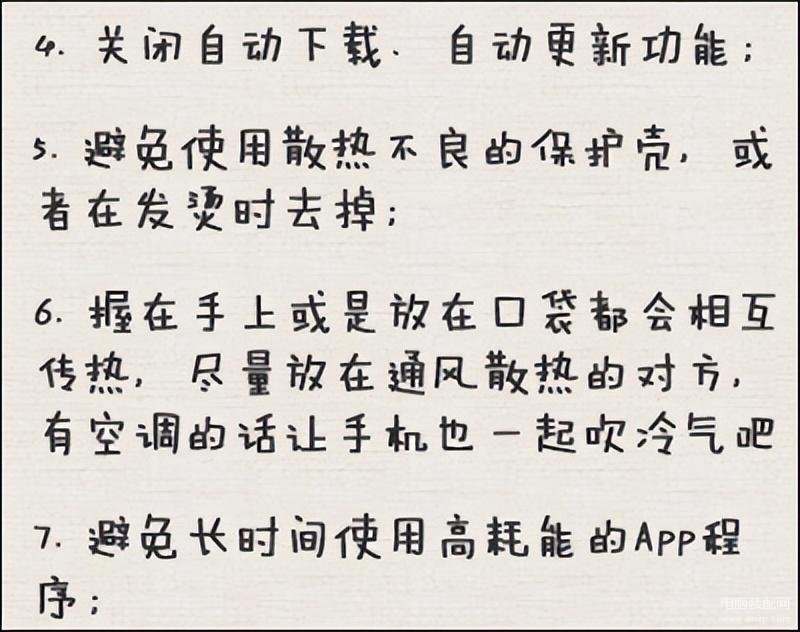 4. 关闭自动下载. 自动更新功能;
5. 避免使用散热不良的保护壳, 或
者在发烫时去掉;
6. 握在手上或是放在口袋都会相互
传热, 尽量放在通风散热的对方,
有空调的话让手机也一起吹冷气吧
7. 避免长时间使用高耗能的APP程
序;
电脑装配网
www.dnzp.com